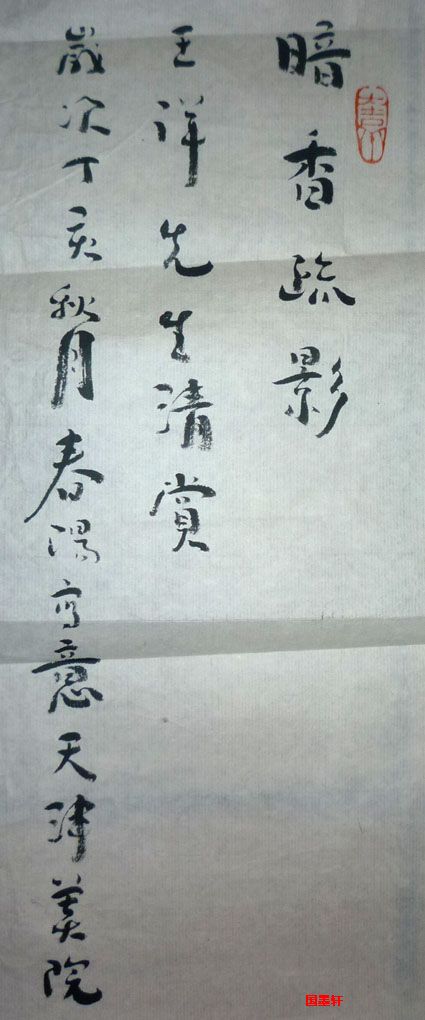 暗香疏影
王祥先生清賞
歲次丁亥秋月春陽写意天津美院
国墨轩